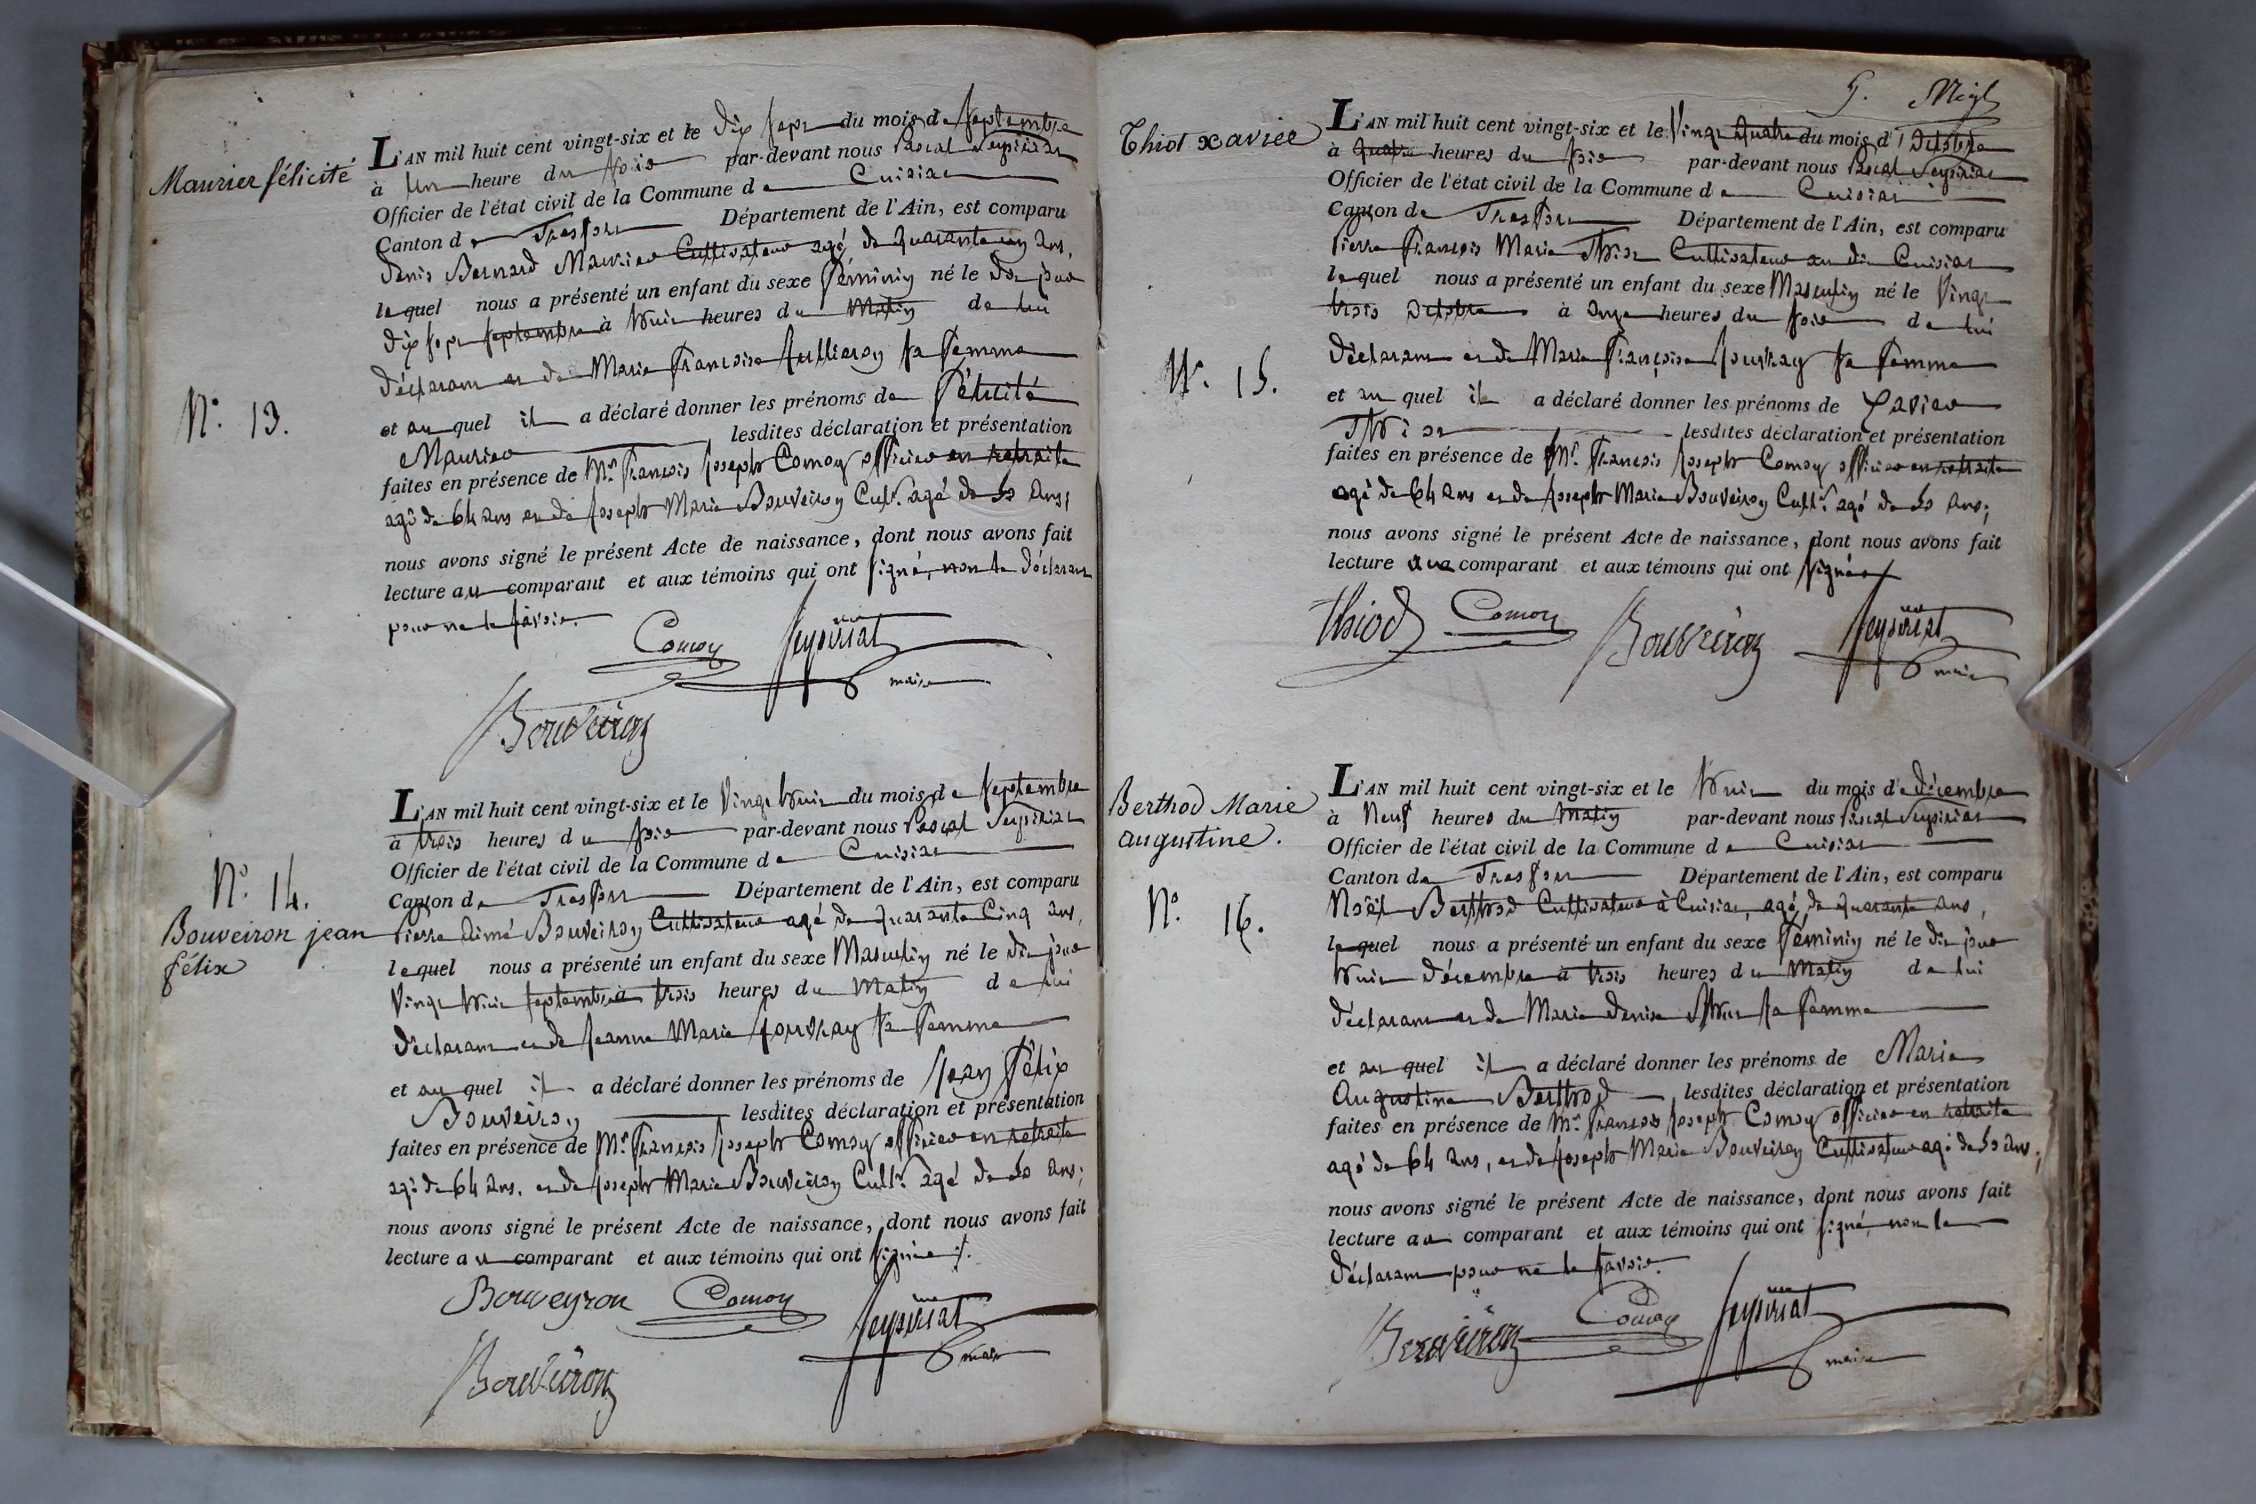 Maurier félicité
N.° 13.
L'AN mil huit cent vingt-six et le dix sept du mois de septembre
à une heure du soir par-devant nous Pascal Seysiriat
Officier de l'état civil de la Commune de Cuisiat
Canton de Treffort Département de l'Ain, est comparu
denis Bernard Maurier Cultivateur agé de quarante un ans,
lequel nous a présenté un enfant du sexe féminin né le d'or jour
dix sept septembre à huit heures du Matin de lui
déclarant et de Marie françoise sa femme
et auquel il a déclaré donner les prénoms de félicité
Maurier lesdites déclaration et présentation
faites en présence de Mr. françois Joseph Comoy officier en retraite
agé de 64 ans et de Joseph Marie Bouveiron Cult.r agé de 50 ans;
nous avons signé le présent Acte de naissance, dont nous avons fait
lecture au comparant et aux témoins qui ont signé, non le déclarant
pour ne le savoir.
Comoy Seysiriat
maire
Bouveiron
N.° 14.
Bouveiron jean
félix
L'AN mil huit cent vingt-six et le vingt huit du mois de septembre
à trois heures du soir par-devant nous Pascal Seysiriat
Officier de l'état civil de la Commune de Cuisiat
Canton de Treffort Département de l'Ain, est comparu
Pierre Aimé Bouveiron Cultivateur agé de quarante Cinq ans,
lequel nous a présenté un enfant du sexe Masculin né le dit jour
vingt huit septembre à trois heures du Matin de lui
déclarant et de Jeanne Marie Jouvray sa femme
et auquel il a déclaré donner les prénoms de Jean félix
Bouveiron lesdites déclaration et présentation
faites en présence de Mr. françois Joseph Comoy officier en retraite
agé de 64 ans. et de Joseph Marie Bouveiron Cult.r agé de 50 ans;
nous avons signé le présent Acte de naissance, dont nous avons fait
lecture au comparant et aux témoins qui ont signé
Bouveyron Comoy Seysiriat
maire
Bouveiron
5.
Thiot xavier
N.° 15.
L'AN mil huit cent vingt-six et le vingt quatre du mois d'octobre
à quatre heures du soir par-devant nous Pascal Seysiriat
Officier de l'état civil de la Commune de Cuisiat
Canton de Treffort Département de l'Ain, est comparu
Pierre françois Marie Thiot Cultivateur au dit Cuisiat
lequel nous a présenté un enfant du sexe Masculin né le vingt
trois octobre à onze heures du soir de lui
déclarant et de Marie françoise Jouvray sa femme
et auquel il a déclaré donner les prénoms de Xavier
Thiot lesdites déclaration et présentation
faites en présence de Mr. françois Joseph Comoy officier en retraite
agé de 64 ans et de Joseph Marie Bouveiron Cult.r agé de 50 ans;
nous avons signé le présent Acte de naissance, dont nous avons fait
lecture aux comparant et aux témoins qui ont signés
thiod Comoy Bouveiron Seysiriat
maire
Berthod Marie
augustine.
N.° 16.
L'AN mil huit cent vingt-six et le huit du mois de décembre
à neuf heures du matin par-devant nous Pascal Seysiriat
Officier de l'état civil de la Commune de Cuisiat
Canton de Treffort Département de l'Ain, est comparu
Noël Berthod Cultivateur à Cuisiat, agé de quarante ans,
lequel nous a présenté un enfant du sexe féminin né le dit jour
huit décembre à trois heures du Matin de lui
déclarant et de Marie denise sa femme
et auquel il a déclaré donner les prénoms de Marie
Augustine Berthod lesdites déclaration et présentation
faites en présence de Mr. françois Joseph Comoy officier en retraite
agé de 64 ans, et de Joseph Marie Bouveiron Cultivateur agé de 50 ans,
nous avons signé le présent Acte de naissance, dont nous avons fait
lecture au comparant et aux témoins qui ont signé, non le
déclarant pour ne le savoir.
Bouveiron Comoy Seysiriat
maire